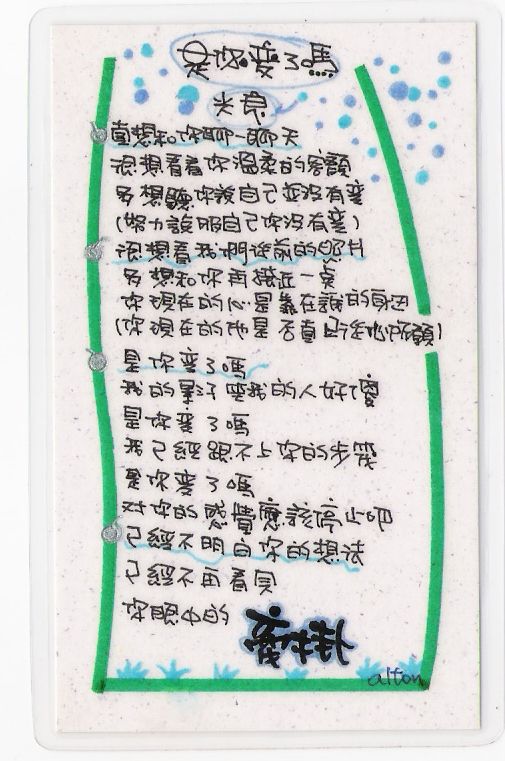 是你變了嗎
光良
真想和你聊一聊天
很想看看你溫柔的容顏
多想聽你說自己並沒有變
(努力說服自己你沒有變)
很想看我們從前的照片
多想和你再接近一點
你現在的心是靠在誰的身邊
(你現在的他是否真已經如所願)
是你變了嗎
我的累了 我的人好傻
是你變了嗎
我已經跟不上你的步伐
是你變了嗎
对你的感覺應該停止吧
已經不明白你的想法
已經不再看見
你眼中的
牽掛
alton